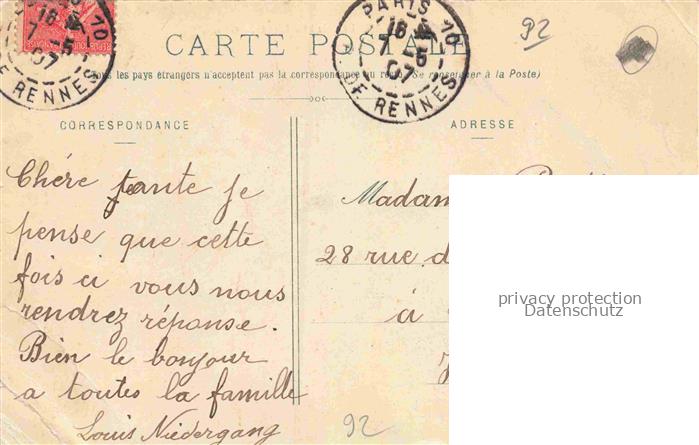 PARIS 10
18
7 -5
07
R. DE RENNES
CARTE POSTALE
92
Tous les pays étrangers n'acceptent pas la correspondance au recto (Se renseigner à la Poste)
CORRESPONDANCE
Chére tante je
pense que cette
fois ci vous nous
rendrez réponse.
Bien le bonjour
a toutes la famille
Louis Niedergang
ADRESSE
Madam
28 rue d
à
92
privacy protection
Datenschutz